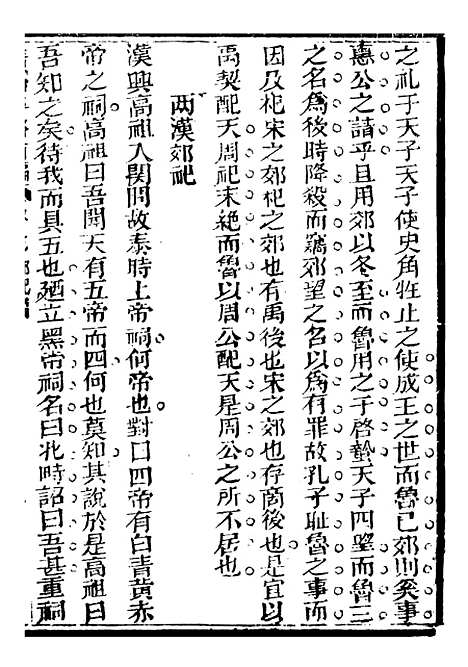 之礼于天子天子使史角徃止之使成王之世而魯已郊則矣事
惠公之請乎且用郊以冬至而魯用之于啓蟄天子四望而魯三
之名爲後時降殺而竊郊望之名以爲有罪故孔子耻魯之事而
因及祀宋之郊祀之郊也有禹後也宋之郊也存商後也是宜以
禹契配天周祀末絶而魯以周公配天是周公之所不居也
两漢郊祀
漢興高祖入関問故秦時上帝祠何帝也對曰四帝有白青黄赤
帝之祠高祖曰吾聞天有五帝而四何也莫知其說於是高祖曰
吾知之矣待我而具五也廼立黑帝祠名曰北畤詔曰吾甚重祠